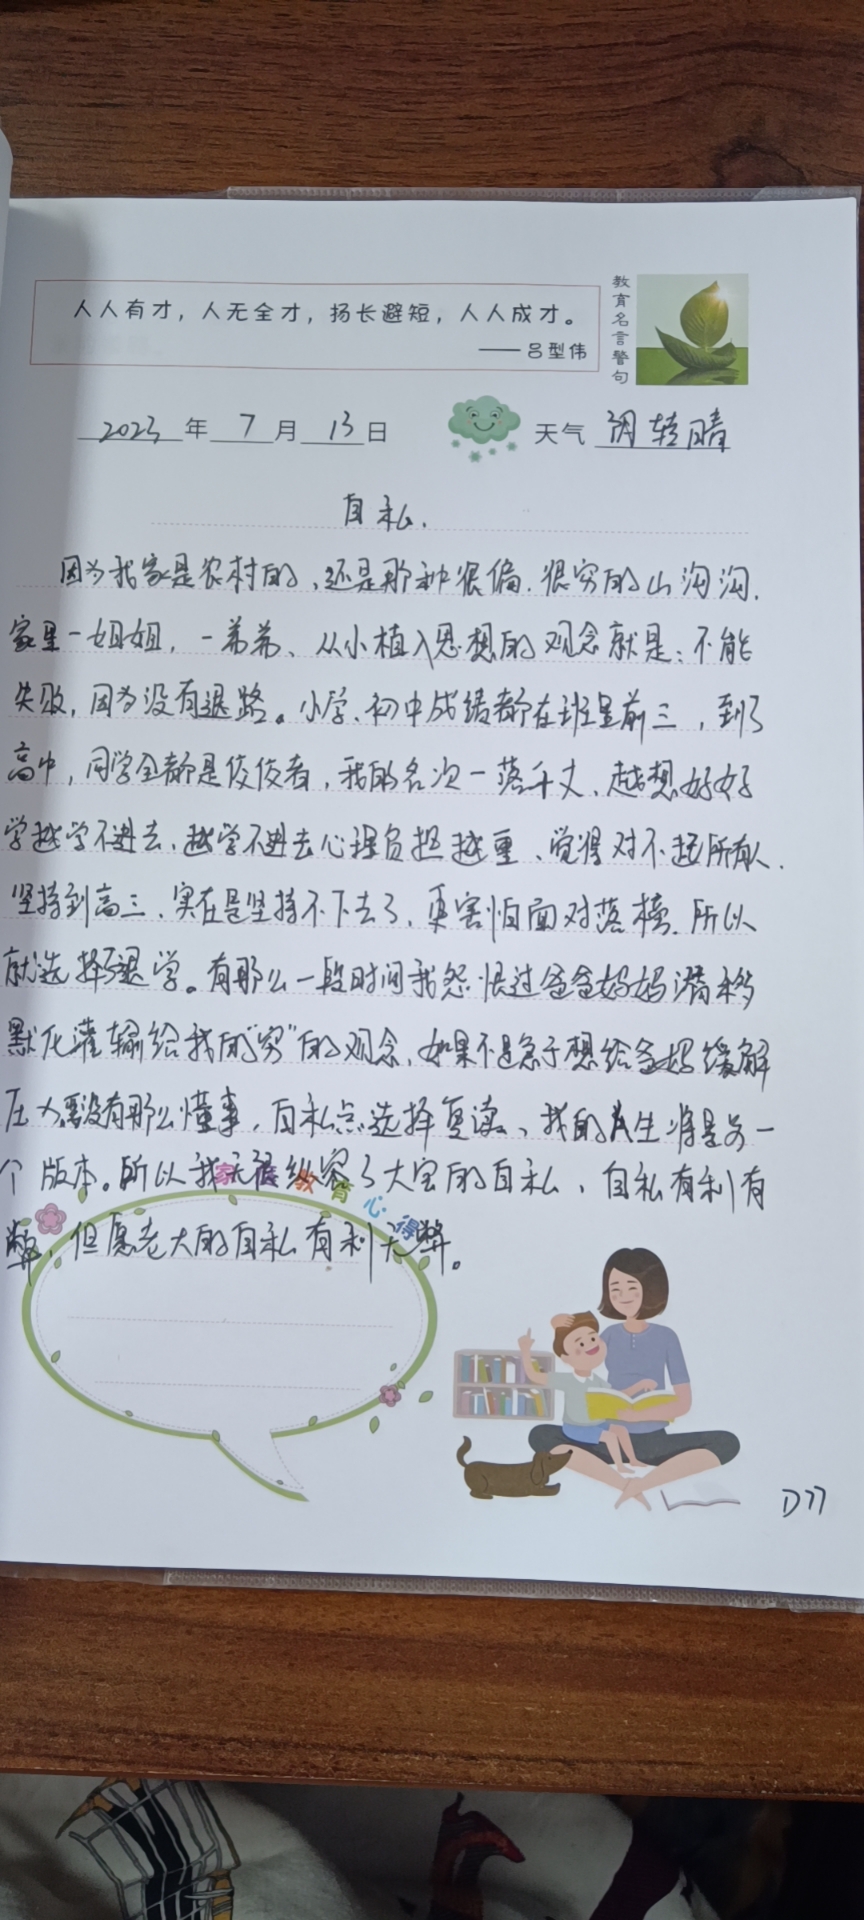 人人有才，人无全才，扬长避短，人人成才。
——吕型伟
教育名言警句
2023年7月13日 天气 阴转晴
自私.
因为我家是农村的、还是那种很偏.很穷的山沟沟.
家里一姐姐，一弟弟、从小植入思想的观念就是：不能
失败，因为没有退路。小学、初中成绩都在班里前三，到了
高中，同学全都是佼佼者，我的名次一落千丈、越想好好
学越学不进去、越学不进去心理负担越重、觉得对不起所有人.
坚持到高三、实在是坚持不下去了，更害怕面对落榜.所以
就选择退学。有那么一段时间我怨恨过爸爸妈妈潜移
默化灌输给我的“穷”的观念、如果不是急于想给爸妈缓解
压力 没有那么懂事，自私点选择复读、我的人生将是另一
个版本。所以我 纵容了大宝的自私、自私有利有
弊，但愿老大的自私有利无弊。
家 教育心得
D77